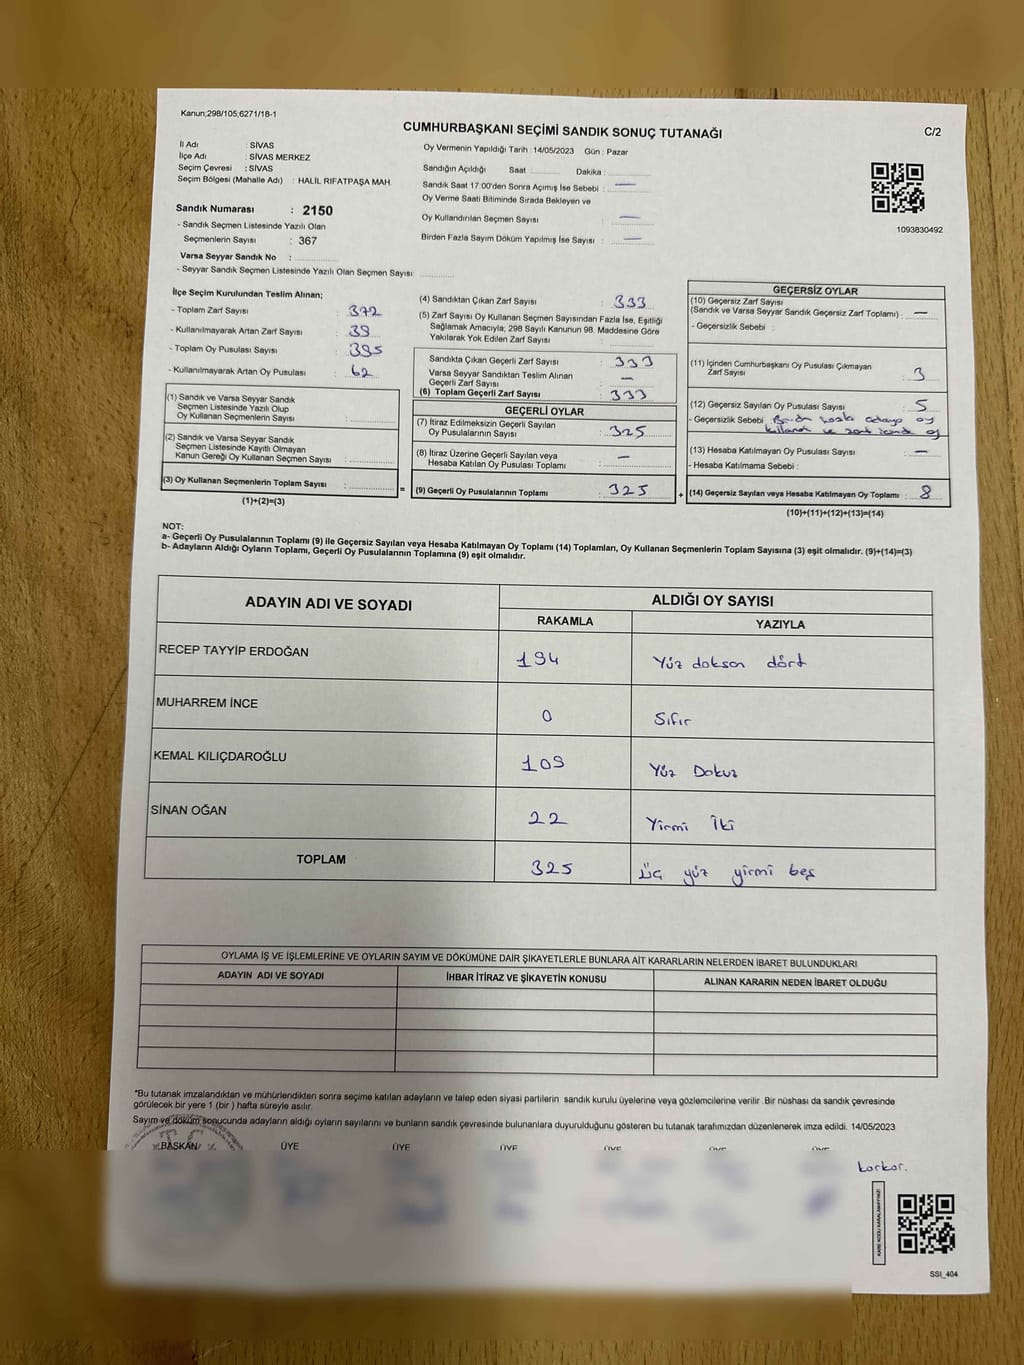 Kanun;298/105;6271/18-1
CUMHURBAŞKANI SEÇİMİ SANDIK SONUÇ TUTANAĞI
C/2
İl Adı : SİVAS
İlçe Adı : SİVAS MERKEZ
Seçim Çevresi : SİVAS
Seçim Bölgesi (Mahalle Adı) : HALİL RIFATPAŞA MAH.
Sandık Numarası : 2150
- Sandık Seçmen Listesinde Yazılı Olan
Seçmenlerin Sayısı : 367
Varsa Seyyar Sandık No :
- Seyyar Sandık Seçmen Listesinde Yazılı Olan Seçmen Sayısı:
Oy Vermenin Yapıldığı Tarih : 14/05/2023 Gün : Pazar
Sandığın Açıldığı Saat : Dakika :
Sandık Saat 17.00'den Sonra Açımış İse Sebebi : —
Oy Verme Saati Bitiminde Sırada Bekleyen ve
Oy Kullandırılan Seçmen Sayısı : —
Birden Fazla Sayım Döküm Yapılmış İse Sayısı : —
1093830492
İlçe Seçim Kurulundan Teslim Alınan;
- Toplam Zarf Sayısı : 372
- Kullanılmayarak Artan Zarf Sayısı : 39
- Toplam Oy Pusulası Sayısı : 395
- Kullanılmayarak Artan Oy Pusulası : 62
(1) Sandık ve Varsa Seyyar Sandık
Seçmen Listesinde Yazılı Olup
Oy Kullanan Seçmenlerin Sayısı :
(2) Sandık ve Varsa Seyyar Sandık
Seçmen Listesinde Kayıtlı Olmayan
Kanun Gereği Oy Kullanan Seçmen Sayısı :
(3) Oy Kullanan Seçmenlerin Toplam Sayısı :
(1)+(2)=(3)
(4) Sandıktan Çıkan Zarf Sayısı : 333
(5) Zarf Sayısı Oy Kullanan Seçmen Sayısından Fazla İse, Eşitliği
Sağlamak Amacıyla; 298 Sayılı Kanunun 98. Maddesine Göre
Yakılarak Yok Edilen Zarf Sayısı :
Sandıkta Çıkan Geçerli Zarf Sayısı : 333
Varsa Seyyar Sandıktan Teslim Alınan
Geçerli Zarf Sayısı : —
(6) Toplam Geçerli Zarf Sayısı : 333
GEÇERLİ OYLAR
(7) İtiraz Edilmeksizin Geçerli Sayılan
Oy Pusulalarının Sayısı : 325
(8) İtiraz Üzerine Geçerli Sayılan veya
Hesaba Katılan Oy Pusulası Toplamı : —
= (9) Geçerli Oy Pusulalarının Toplamı : 325
GEÇERSİZ OYLAR
(10) Geçersiz Zarf Sayısı
(Sandık ve Varsa Seyyar Sandık Geçersiz Zarf Toplamı) : —
- Geçersizlik Sebebi :
(11) İçinden Cumhurbaşkanı Oy Pusulası Çıkmayan
Zarf Sayısı : 3
(12) Geçersiz Sayılan Oy Pusulası Sayısı : 5
- Geçersizlik Sebebi : Birden fazla adaya oy
ve
(13) Hesaba Katılmayan Oy Pusulası Sayısı : —
- Hesaba Katılmama Sebebi :
+ (14) Geçersiz Sayılan veya Hesaba Katılmayan Oy Toplamı : 8
(10)+(11)+(12)+(13)=(14)
NOT:
a- Geçerli Oy Pusulalarının Toplamı (9) ile Geçersiz Sayılan veya Hesaba Katılmayan Oy Toplamı (14) Toplamları, Oy Kullanan Seçmenlerin Toplam Sayısına (3) eşit olmalıdır. (9)+(14)=(3)
b- Adayların Aldığı Oyların Toplamı, Geçerli Oy Pusulalarının Toplamına (9) eşit olmalıdır.
ADAYIN ADI VE SOYADI ALDIĞI OY SAYISI
RAKAMLA YAZIYLA
RECEP TAYYİP ERDOĞAN 194 Yüz doksan dört
MUHARREM İNCE 0 Sıfır
KEMAL KILIÇDAROĞLU 109 Yüz Dokuz
SİNAN OĞAN 22 Yirmi İki
TOPLAM 325 üç yüz yirmi beş
OYLAMA İŞ VE İŞLEMLERİNE VE OYLARIN SAYIM VE DÖKÜMÜNE DAİR ŞİKAYETLERLE BUNLARA AİT KARARLARIN NELERDEN İBARET BULUNDUKLARI
ADAYIN ADI VE SOYADI İHBAR İTİRAZ VE ŞİKAYETİN KONUSU ALINAN KARARIN NEDEN İBARET OLDUĞU
*Bu tutanak imzalandıktan ve mühürlendikten sonra seçime katılan adayların ve talep eden siyasi partilerin sandık kurulu üyelerine veya gözlemcilerine verilir .Bir nüshası da sandık çevresinde
görülecek bir yere 1 (bir ) hafta süreyle asılır.
Sayım ve döküm sonucunda adayların aldığı oyların sayılarını ve bunların sandık çevresinde bulunanlara duyurulduğunu gösteren bu tutanak tarafımızdan düzenlenerek imza edildi. 14/05/2023
BAŞKAN ÜYE ÜYE ÜYE ÜYE ÜYE ÜYE
korkor.
KARE KODU KARALAMAYINIZ!
SSI_404